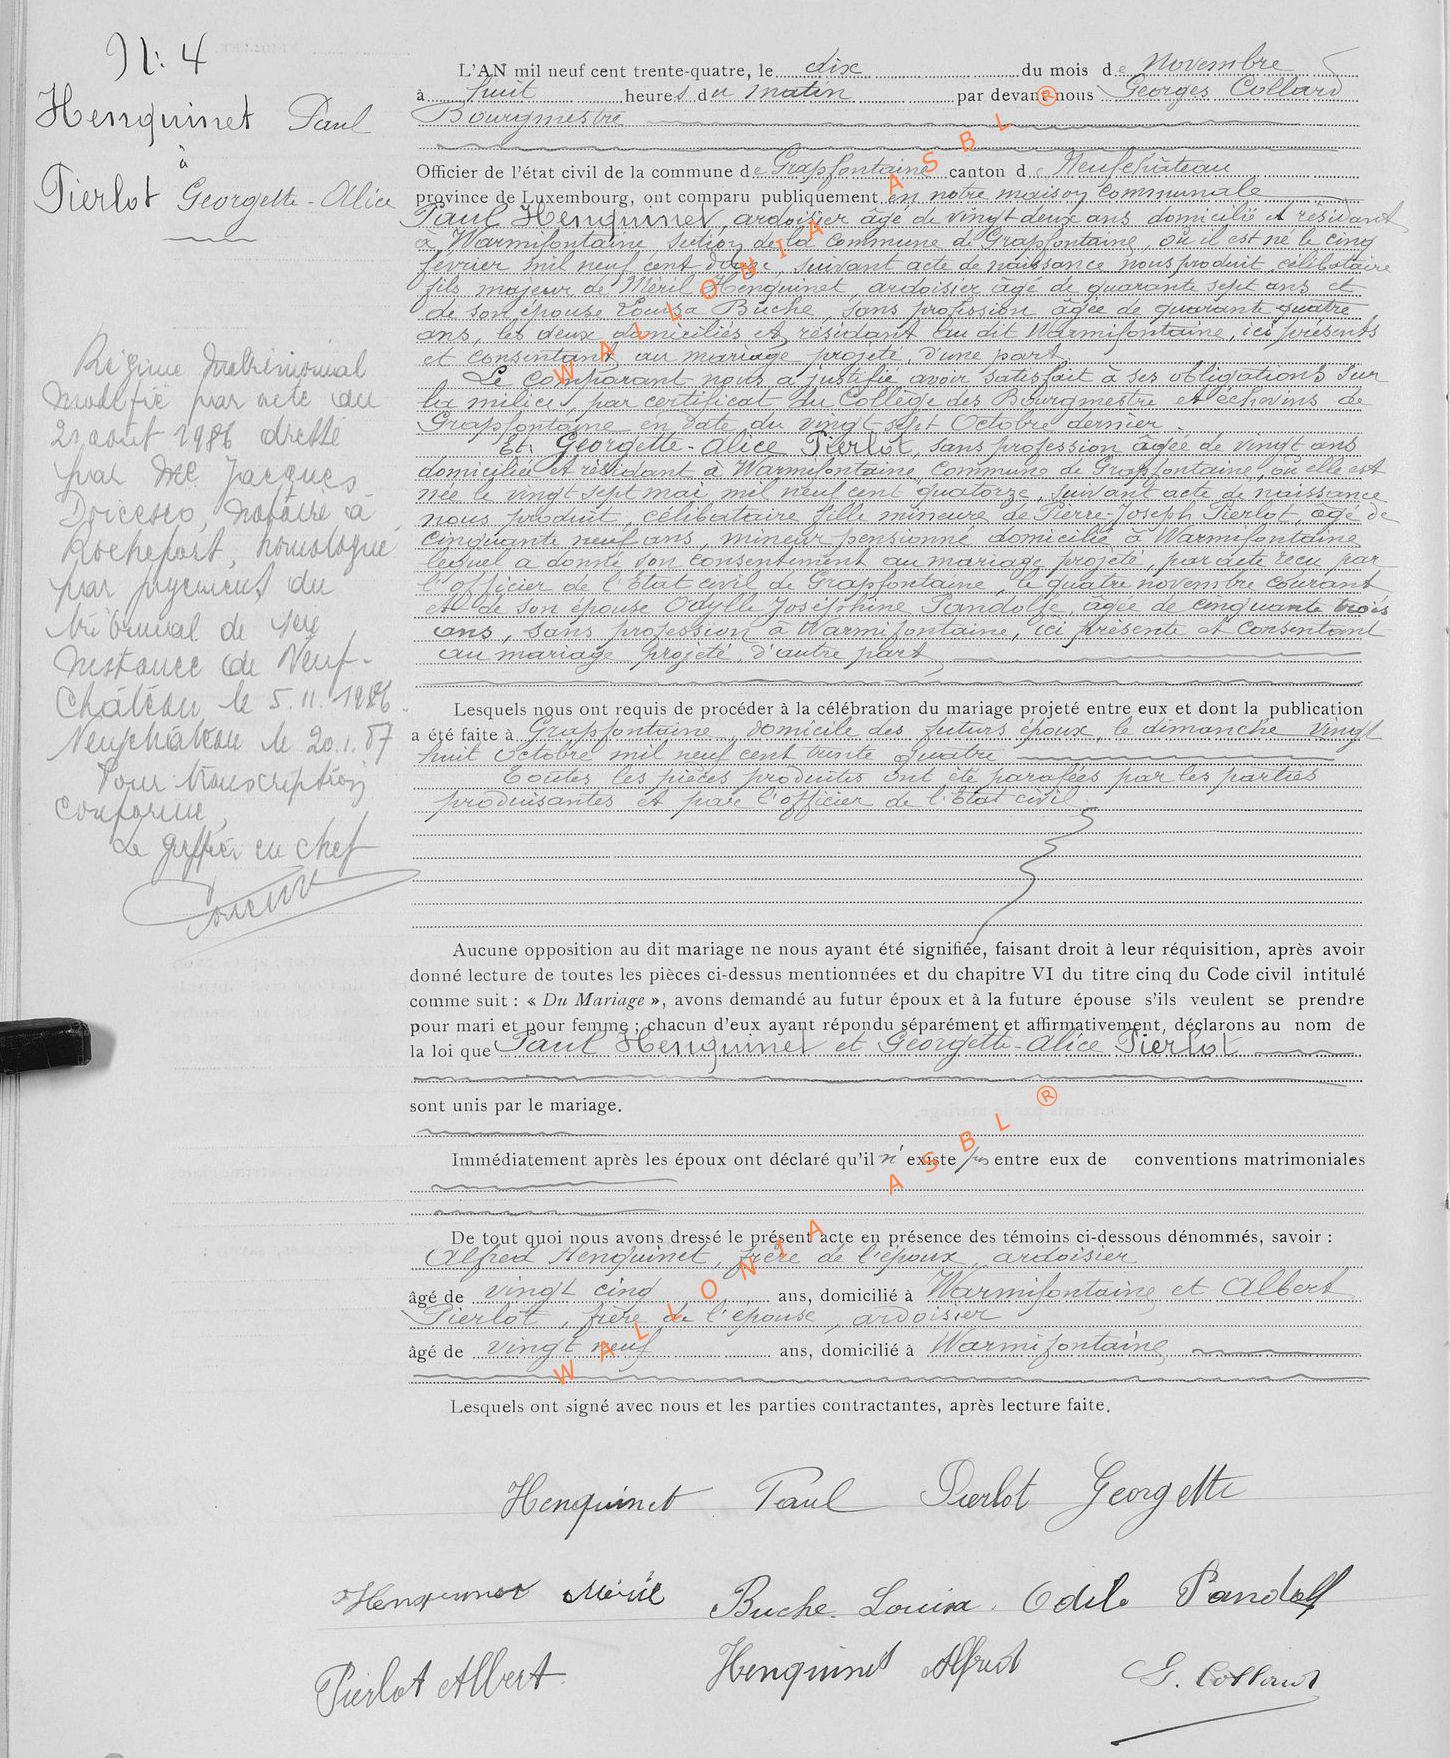 N: 4
Henquinet Paul
à
Pierlot Georgette-Alice
Régime matrimonial
modifié par acte du
21 août 1986 dressé
par Me Jacques
notaire à
Rochefort, homologué
par jugement du
tribunal de 1ère
Instance de Neuf-
château le 5.11.1986.
Neufchâteau le 20.1.87
Pour transcription
conforme,
Le greffier en chef
L'AN mil neuf cent trente-quatre, le dix du mois de Novembre
à huit heures du matin par devant nous Georges Collard
Bourgmestre
Officier de l'état civil de la commune de Grapfontaine canton de Neufchâteau
province de Luxembourg, ont comparu publiquement en notre maison Communale
Paul Henquinet, ardoisier âgé de vingt deux ans domicilié et résidant
à Warmifontaine section de la Commune de Grapfontaine, où il est né le cinq
février mil neuf cent douze, suivant acte de naissance nous produit, célibataire
fils majeur de Méril Henquinet, ardoisier âgé de quarante sept ans et
de son épouse Louisa Buche, sans profession âgée de quarante quatre
ans, les deux domiciliés et résidant au dit Warmifontaine, ici présents
et consentant au mariage projeté, d'une part
Le Comparant nous a justifié avoir satisfait à ses obligations sur
la milice, par certificat du Collège des Bourgmestre et échevins de
Grapfontaine en date du vingt sept Octobre dernier.
Et: Georgette-Alice Pierlot, sans profession âgée de vingt ans
domiciliée et résidant à Warmifontaine, Commune de Grapfontaine, où elle est
née le vingt sept mai mil neuf cent quatorze, suivant acte de naissance
nous produit, célibataire fille mineure de Pierre-Joseph Pierlot, âgé de
cinquante neuf ans, mineur pensionné domicilié à Warmifontaine
lequel a donné son consentement au mariage projeté, par acte reçu par
l'officier de l'Etat civil de Grapfontaine, le quatre novembre courant
et de son épouse Odylle Joséphine Pandolfe, âgée de cinquante trois
ans, sans profession à Warmifontaine, ici présente et consentant
au mariage projeté, d'autre part,
Lesquels nous ont requis de procéder à la célébration du mariage projeté entre eux et dont la publication
a été faite à Grapfontaine, domicile des futurs époux, le dimanche vingt
huit Octobre mil neuf cent trente quatre
Toutes les pièces produites ont été parafées par les parties
produisantes et par l'officier de l'Etat civil
Aucune opposition au dit mariage ne nous ayant été signifiée, faisant droit à leur réquisition, après avoir
donné lecture de toutes les pièces ci-dessus mentionnées et du chapitre VI du titre cinq du Code civil intitulé
comme suit : « Du Mariage », avons demandé au futur époux et à la future épouse s'ils veulent se prendre
pour mari et pour femme ; chacun d'eux ayant répondu séparément et affirmativement, déclarons au nom de
la loi que Paul Henquinet et Georgette-Alice Pierlot
sont unis par le mariage.
Immédiatement après les époux ont déclaré qu'il n'existe pas entre eux de conventions matrimoniales
De tout quoi nous avons dressé le présent acte en présence des témoins ci-dessous dénommés, savoir :
Alfred Henquinet, frère de l'époux, ardoisier
âgé de vingt cinq ans, domicilié à Warmifontaine et Albert
Pierlot, frère de l'épouse, ardoisier
âgé de vingt neuf ans, domicilié à Warmifontaine
Lesquels ont signé avec nous et les parties contractantes, après lecture faite.
Henquinet Paul Pierlot Georgette
Henquinet Méril Buche Louisa Odile Pandolf
Pierlot Albert Henquinet Alfred G. Collard
WALLONIA ASBL ®
WALLONIA ASBL ®